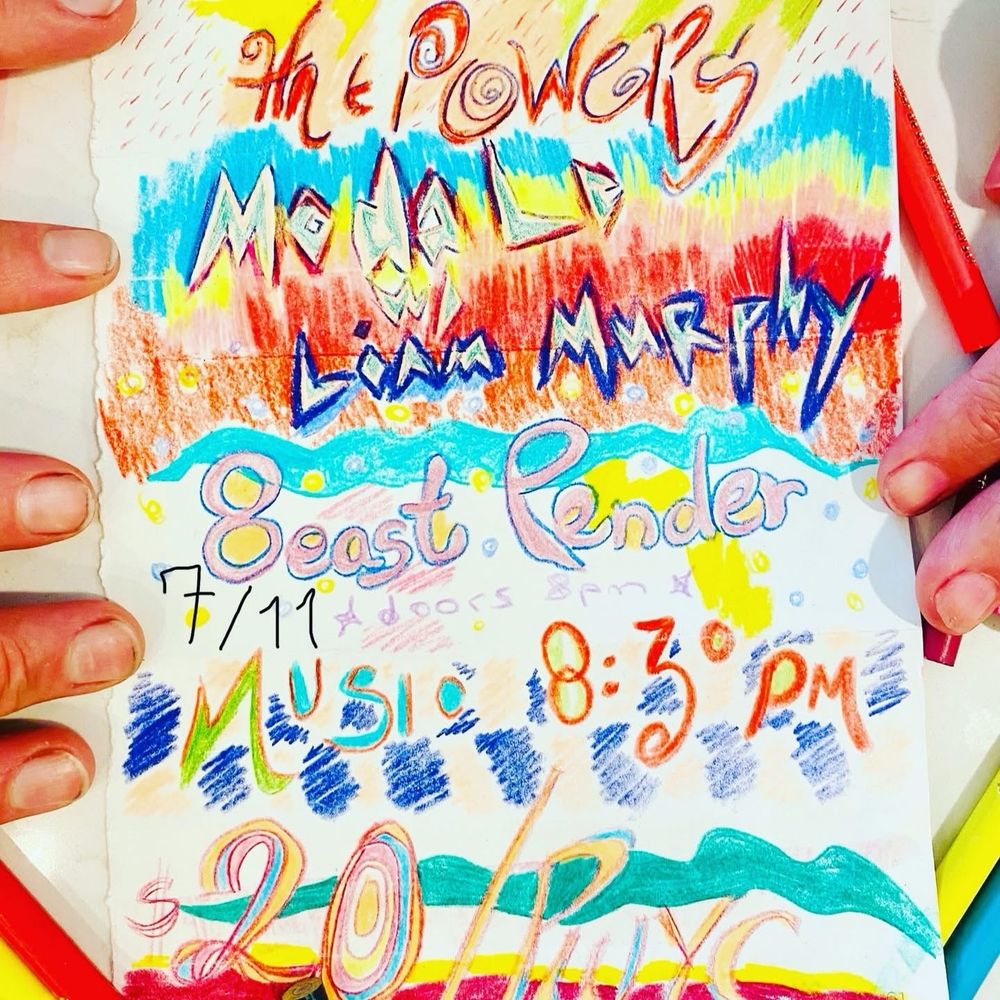 the Powers
Moda Lo
w/
Liam Murphy
8 east Pender
7/11 ☆doors 8pm☆
Music 8:30 PM
$20/PWYC